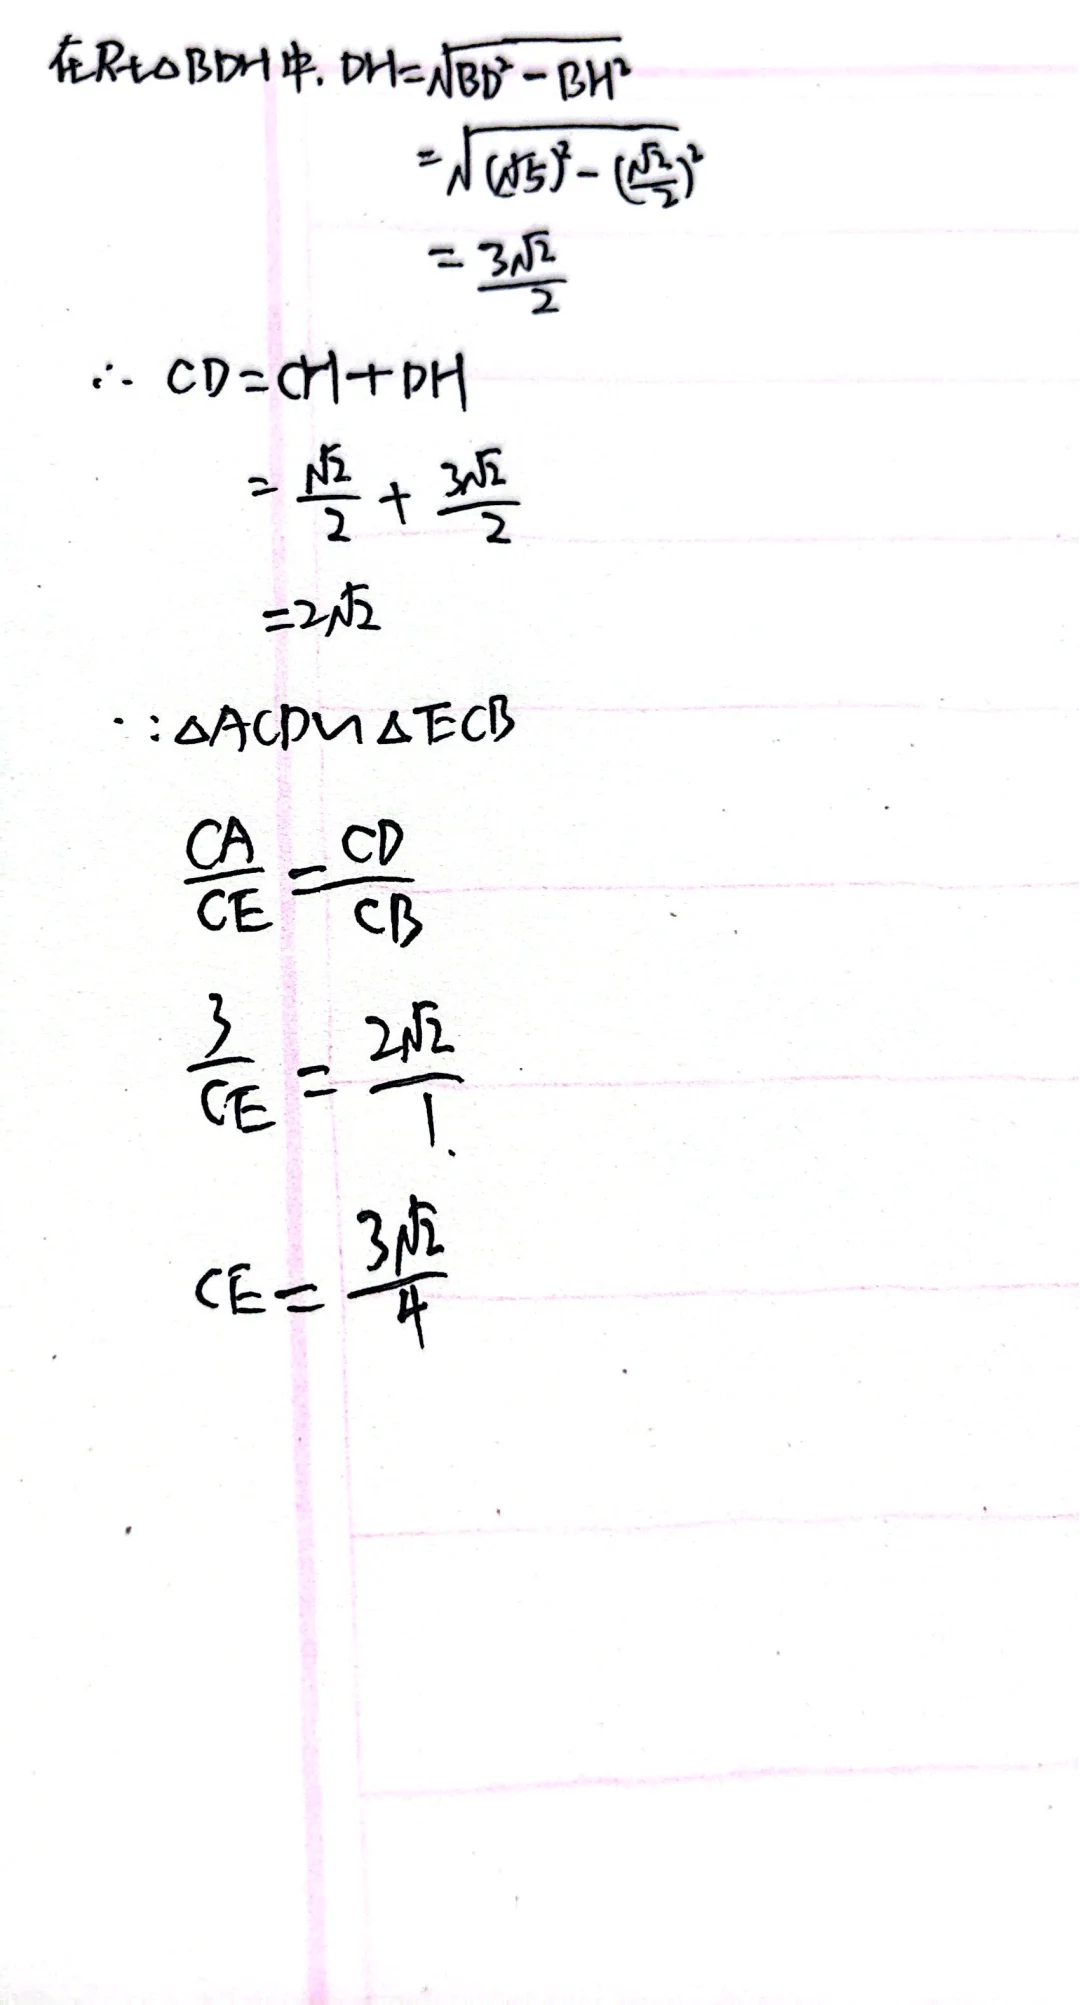 在Rt△BDH中, DH=√(BD²-BH²)
=√((√5)²-(√2/2)²)
=3√2/2
∴ CD=CH+DH
=√2/2+3√2/2
=2√2
∵△ACD∽△ECB
CA/CE=CD/CB
3/CE=2√2/1.
CE=3√2/4